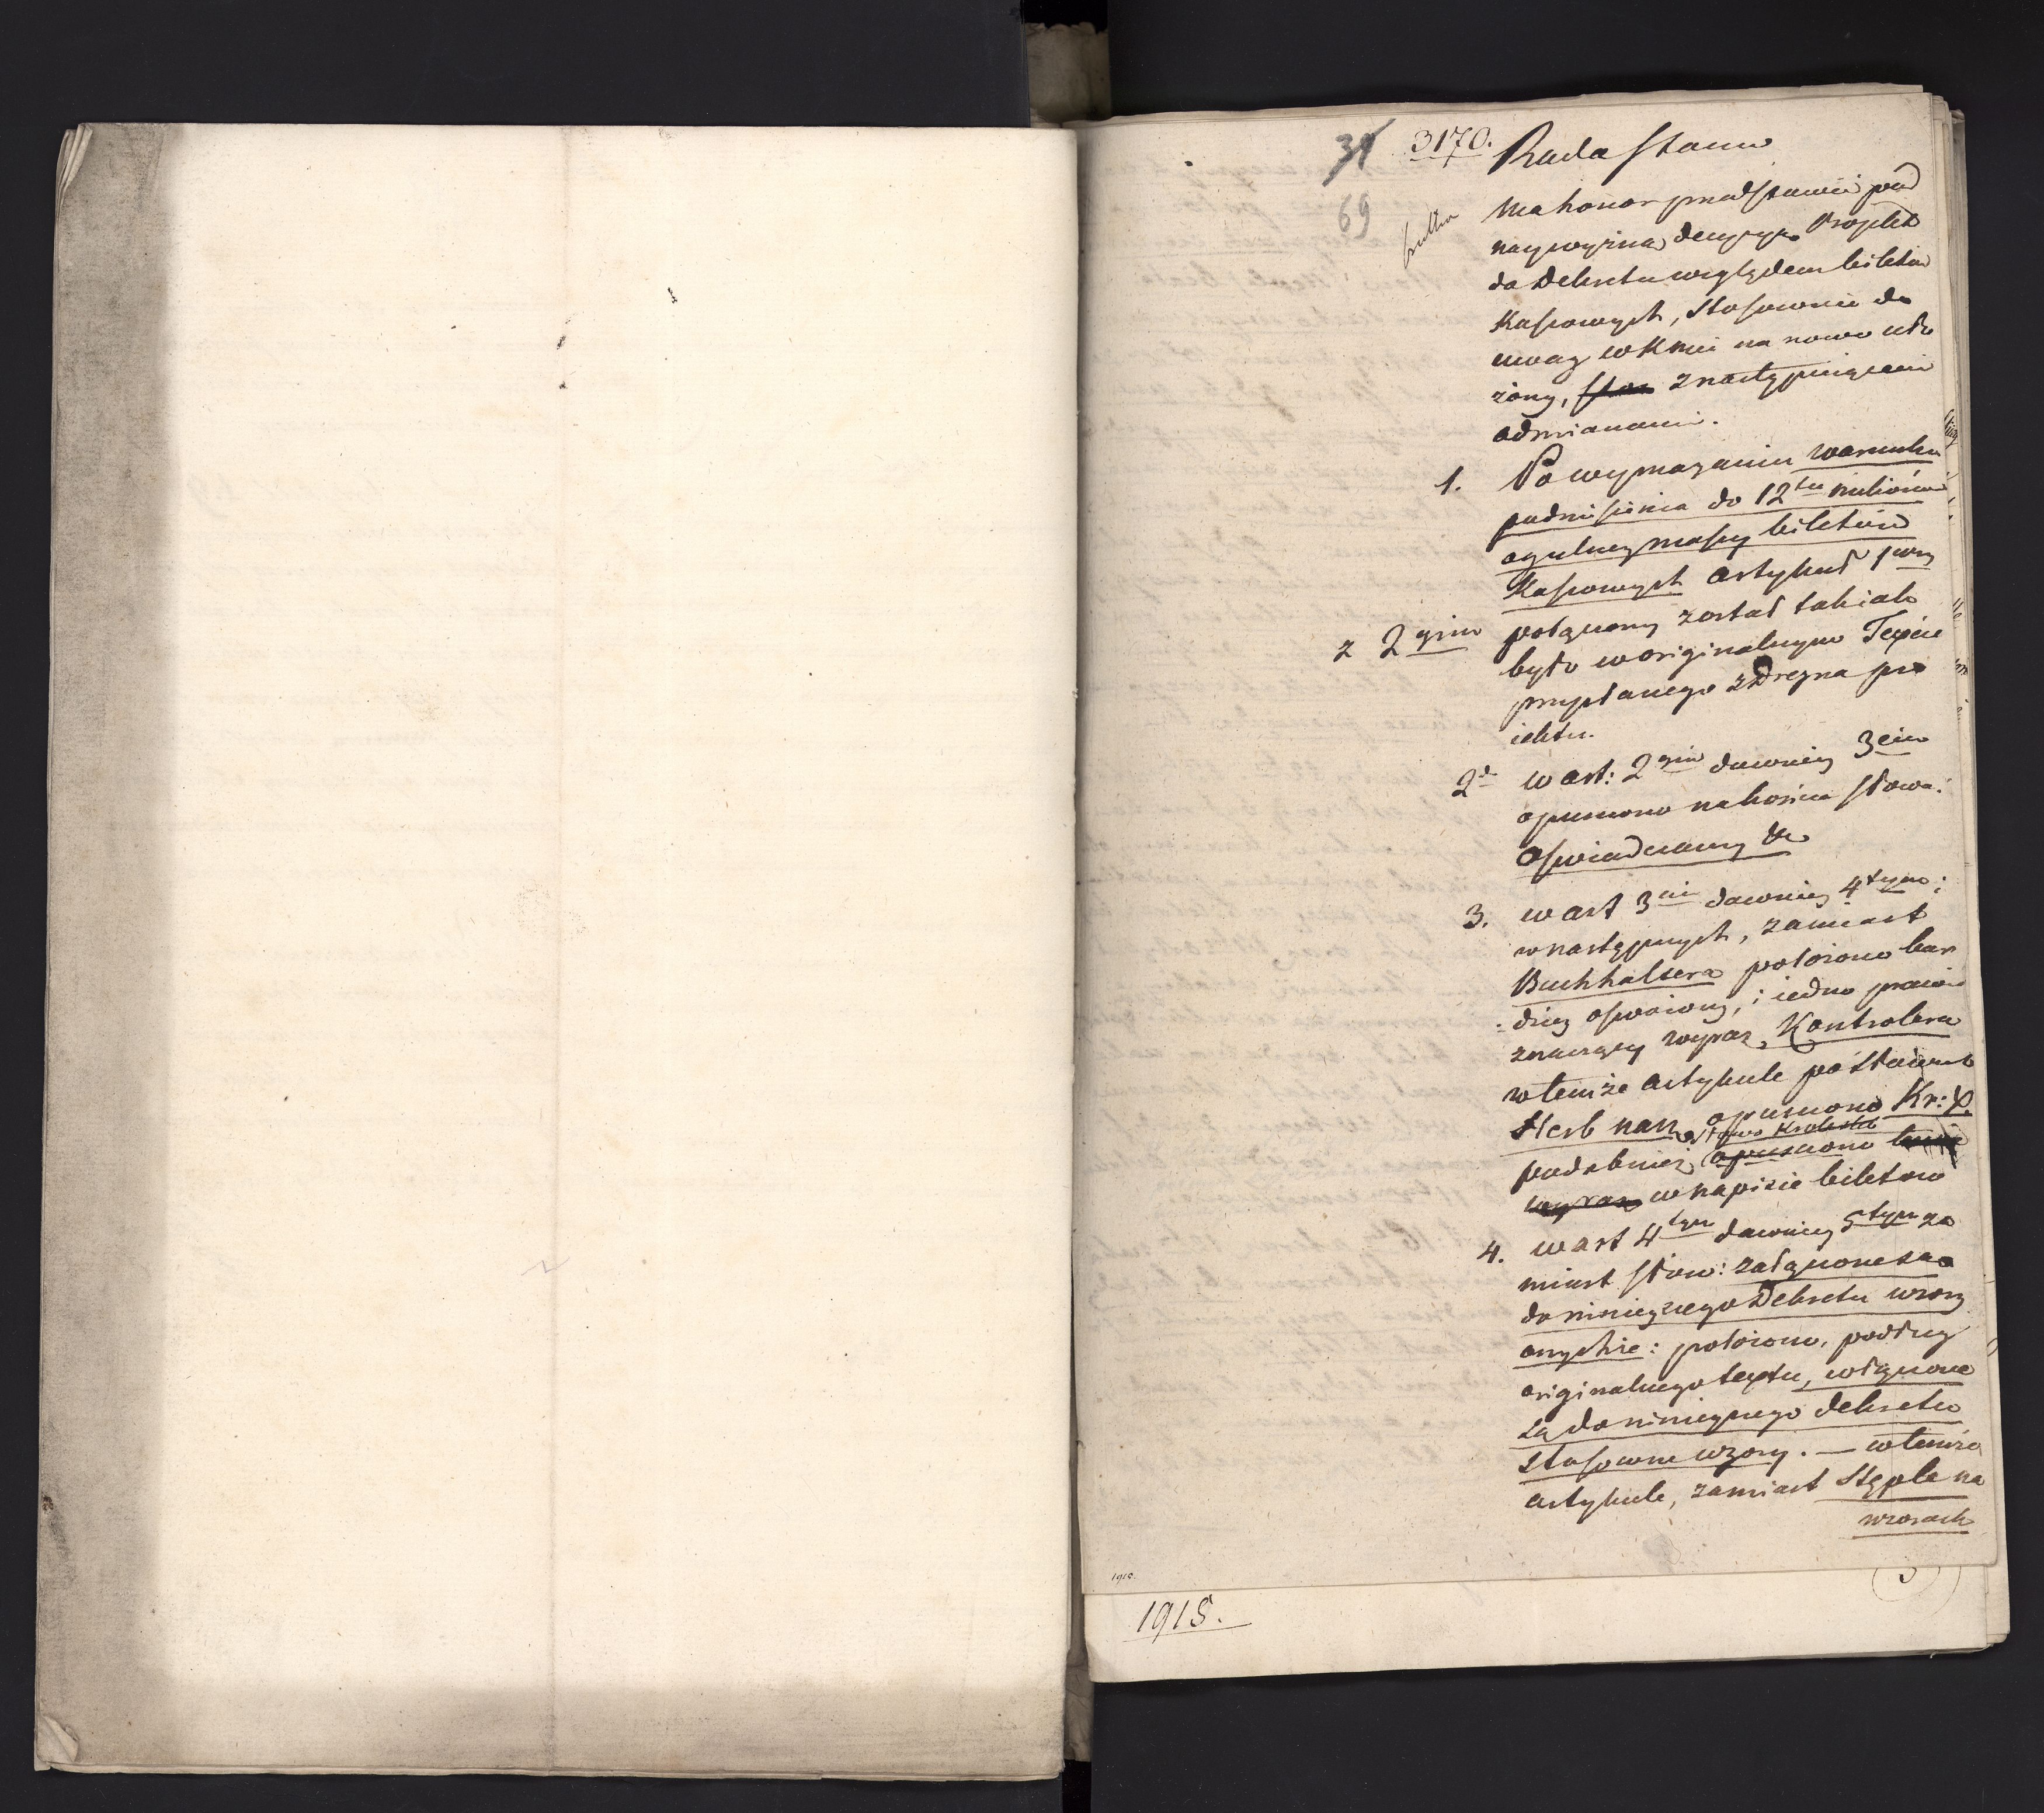 31 3170. Rada Stanu
69
ma honor przedstawić pod
naywyższą decyzyą Projekt
do Dekretu względem biletów
Kassowych, stosownie do
uwag w K
na nowo uło
żony, z następuiącemi
odmianami.
1. Po wymazaniu warunku
podniesienia do 12tu milionów
ogulney massy biletów
Kassowych Artykuł 1wszy
z 2gim połączony został tak iak
było w originalnym Texcie
przysłanego z Drezna pro
iektu.
2o w art: 2gim dawniey 3cim
opuszczono na końcu słowa:
Oświadczamy &c
3. w art 3cim dawniey 4tym;
w następnych, zamiast
Buchhaltera położono bar
dziey oswoiony, i iedno prawie
znaczący wyraz, Kontrolera
w temże Artykule po słowach
Herb nasz opuszczono Kr: X.
słowo Królestw
podobnież opuszczono
wyraz w napisie biletów
4. w art 4tym dawniey 5tym za
miast słow: załączone są
do ninieyszego Dekretu wzory
onychże: położono, podług
originalnego textu, włączone
są do ninieyszego dekretu
stosowne wzory. — w temże
artykule, zamiast Stęple na
wzorach
1915.
1915.